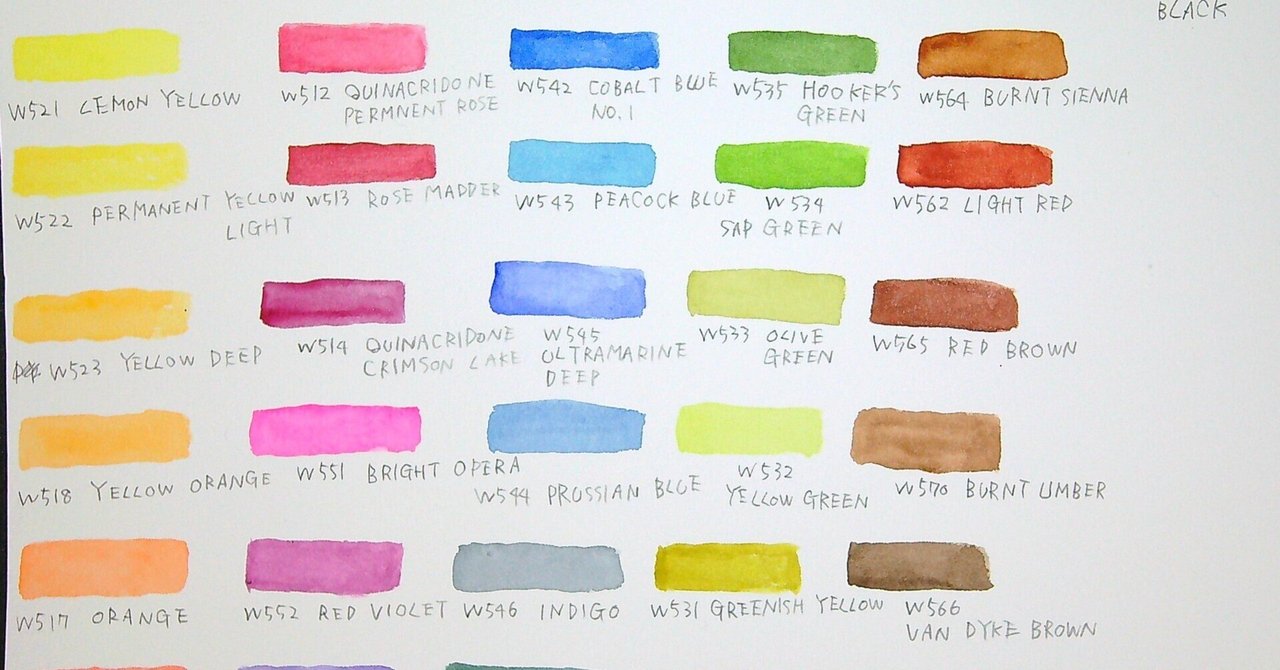 BLACK
W521 LEMON YELLOW
W512 QUINACRIDONE
PERMNENT ROSE
W542 COBALT BLUE
NO.1
W535 HOOKER'S
GREEN
W564 BURNT SIENNA
W522 PERMANENT YELLOW
LIGHT
W513 ROSE MADDER
W543 PEACOCK BLUE
W534
SAP GREEN
W562 LIGHT RED
W523 YELLOW DEEP
W514 QUINACRIDONE
CRIMSON LAKE
W545
ULTRAMARINE
DEEP
W533 OLIVE
GREEN
W565 RED BROWN
W518 YELLOW ORANGE
W551 BRIGHT OPERA
W544 PRUSSIAN BLUE
W532
YELLOW GREEN
W570 BURNT UMBER
W517 ORANGE
W552 RED VIOLET
W546 INDIGO
W531 GREENISH YELLOW
W566
VAN DYKE BROWN